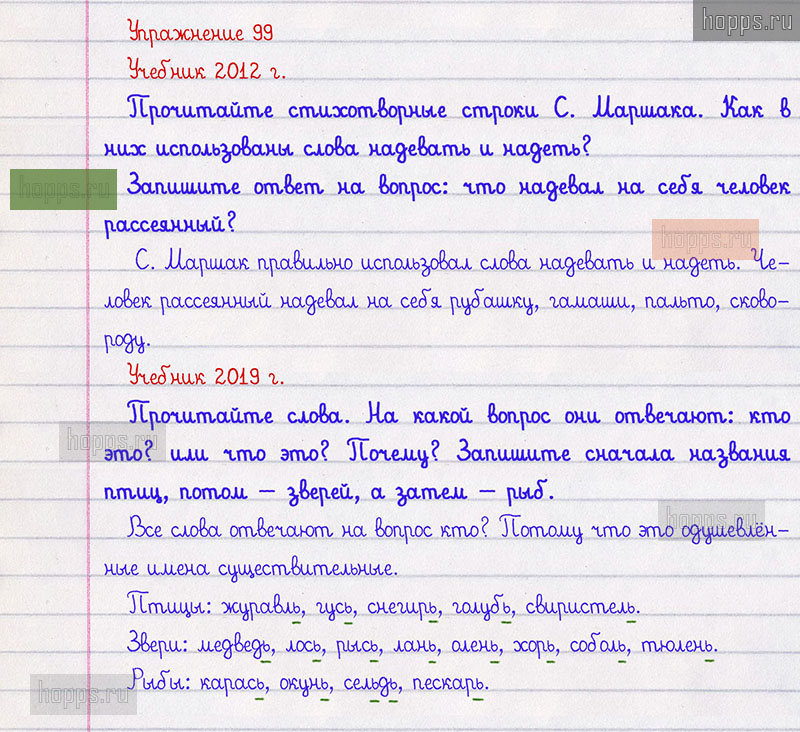 hopps.ru
Упражнение 99
Учебник 2012 г.
Прочитайте стихотворные строки С. Маршака. Как в
них использованы слова надевать и надеть?
hopps.ru
Запишите ответ на вопрос: что надевал на себя человек
рассеянный?
hopps.ru
С. Маршак правильно использовал слова надевать и надеть. Че-
ловек рассеянный надевал на себя рубашку, гамаши, пальто, сково-
роду.
Учебник 2019 г.
Прочитайте слова. На какой вопрос они отвечают: кто
hopps.ru
это? или что это? Почему? Запишите сначала названия
птиц, потом – зверей, а затем – рыб.
hopps.ru
Все слова отвечают на вопрос кто? Потому что это одушевлён-
ные имена существительные.
Птицы: журавль, гусь, снегирь, голубь, свиристель.
Звери: медведь, лось, рысь, лань, олень, хорь, соболь, тюлень.
Рыбы: карась, окунь, сельдь, пескарь.
hopps.ru